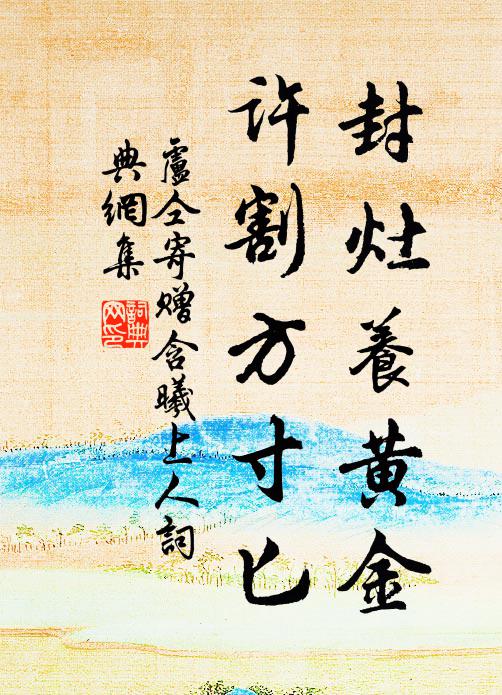 封灶養黄金
許割方寸匕
盧仝寄贈含曦上人詞
典網集
詞典
网印